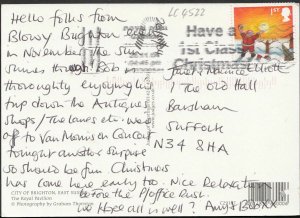 Hello folks from
Blowy Brighton
in November the sun
shines though Bob &
thoroughly enjoying
trip down the Antiques
Shops/The lanes etc. we're
off to Van Morrison Concert
tonight another surprise
so should be fun. Christmas
has come here early too. Nice Relaxation
before the P/office Rush.
we Hope all is well? Angi & Bob XX
LC4522
1ST
Have a
1st Class
Christmas
Janet, Maurice Elliott
1 The Old Hall
Barsham
SUFFOLK
N34 8HA
CITY OF BRIGHTON, EAST SUSSEX
The Royal Pavilion
© Photography by Graham